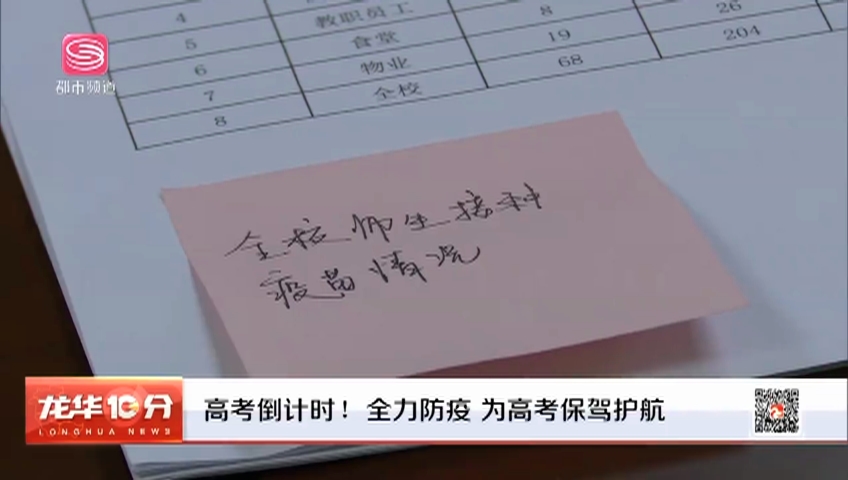 都市频道
4
5 教职员工 8 26
6 食堂 19 204
7 物业 68
8 全校
全校师生接种
疫苗情况
龙华10分
LONGHUA NEWS
高考倒计时！全力防疫 为高考保驾护航